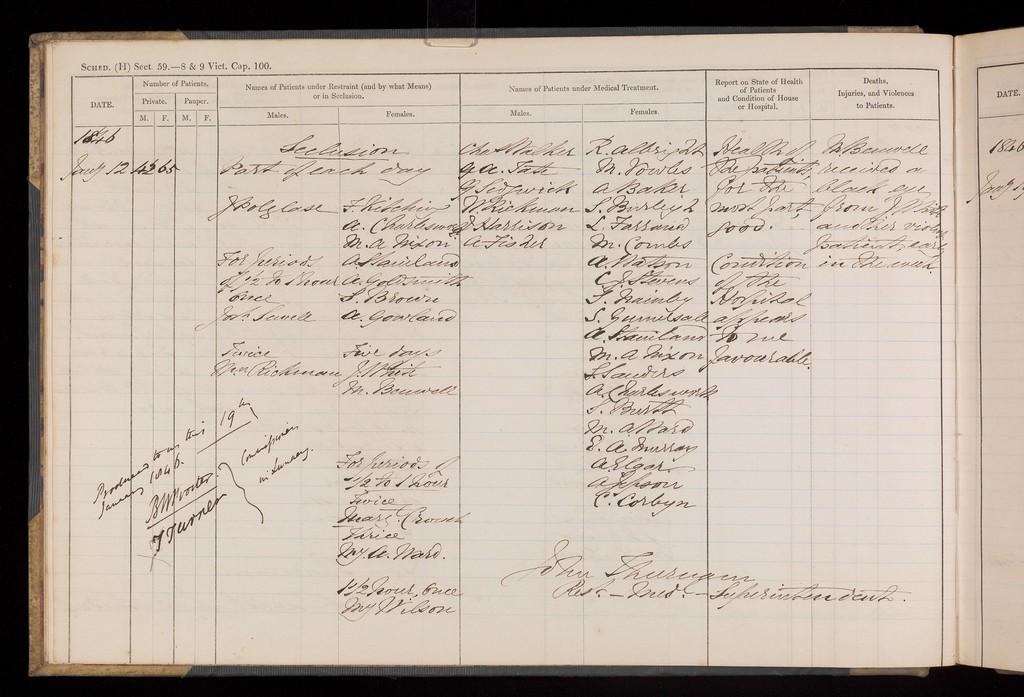 SCHED. (H) Sect. 59.—8 & 9 Vict. Cap. 100.
DATE.
Number of Patients.
Private.
Pauper.
M.
F.
M.
F.
Names of Patients under Restraint (and by what Means)
or in Seclusion.
Males.
Females.
Names of Patients under Medical Treatment.
Males.
Females.
Report on State of Health
of Patients
and Condition of House
or Hospital.
Deaths,
Injuries, and Violences
to Patients.
1846
Jany 12
43
65
Seclusion
Part of each day
J Polglase
For periods
of 1/2 to 1 hour
once
Twice
Wm Rickman
F. Kitching
A. Charlesworth
M. A Nixon
A Staniland
A. Goldsmith
S. Brown
A. Gowland
Five days
J. White
M. Benwell
For periods of
1/2 to 1 hour
Twice
Mart. Crouch
My A. Ward.
1 1/2 hour, once
My Wilson
Chas Walker
G A. Tate
G Sedgwick
W. Rickman
J Harrison
A Fisher
R. Albright
M. Fowles
A Baker
S. Burleigh
L. Farrand
M. Combs
A. Watson
C. J. Stevens
F. Mainby
S. Gurnelsall
A. Staniland
M. A Nixon
S. Sanders
A. Charlesworth
M. A Ward
E. A. Murray
A Elgar
C. Corbyn
Health of
the patients
for the
most part
good.
Condition
of the
Hospital
appears
to me
favourable.
M Benwell
received a
black eye
from J White
another violent
patient, early
in the week.
Produced to us this 19th
January 1846.
B W Procter
T Turner
Commissioners
in Lunacy.
John Thurnam
Rest. - Medl. - Superintendent.
DATE.
1846
Jany 19